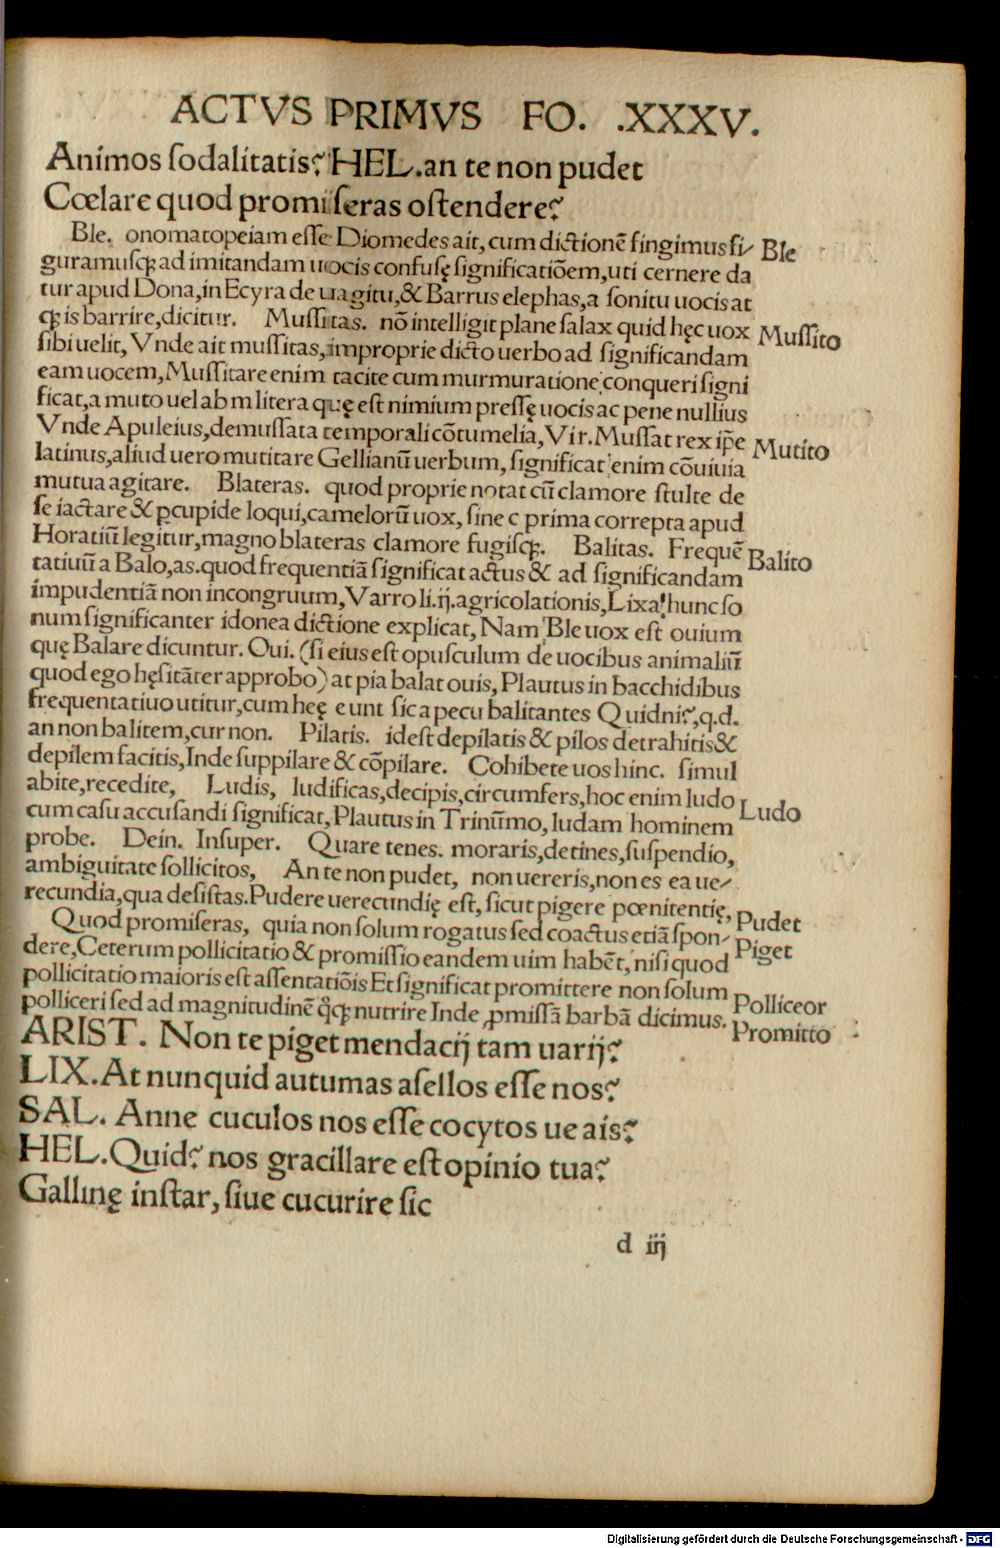 ACTVS PRIMVS FO. .XXXV.
Animos ſodalitatis? HEL.an te non pudet
Cœlare quod promiſeras oſtendere?
Ble. onomatopeiam eſſe Diomedes ait, cum dictionē fingimus fi⸗ Ble
guramuſꝗ ad imitandam uocis confuſę ſignificatiōem,uti cernere da
tur apud Dona,in Ecyra de uagitu,& Barrus elephas,a ſonitu uocis at
ꝗ is barrire,dicitur. Muſſitas. nō intelligit plane ſalax quid hęc uox Muſſito
ſibi uelit, Vnde ait muſſitas,improprie dicto uerbo ad ſignificandam
eam uocem,Muſſitare enim tacite cum murmuratione conqueri ſigni
ficat,a muto uel ab m litera quę eſt nimium preſſę uocis ac pene nullius
Vnde Apuleius,demuſſata temporali cōtumelia,Vir.Muſſat rex ip̄e
latinus,aliud uero mutitare Gellianū uerbum, ſignificat enim cōuiuia Mutito
mutua agitare. Blateras. quod proprie notat cū clamore ſtulte de
ſe iactare & ꝑcupide loqui,camelorū uox, ſine c prima correpta apud
Horatiū legitur,magno blateras clamore fugiſꝗ. Balitas. Frequē
tatiuū a Balo,as.quod frequentiā ſignificat actus & ad ſignificandam Balito
impudentiā non incongruum,Varro li.ij.agricolationis,Lixa hunc ſo
num ſignificanter idonea dictione explicat, Nam Ble uox eſt ouium
quę Balare dicuntur. Oui. (ſi eius eſt opuſculum de uocibus animaliū
quod ego hęſitāter approbo) at pia balat ouis, Plautus in bacchidibus
frequentatiuo utitur,cum hęę eunt ſic a pecu balitantes Quidni?,q.d.
an non balitem,cur non. Pilatis. ideſt depilatis & pilos detrahitis&
depilem facitis,Inde ſuppilare & cōpilare. Cohibete uos hinc. ſimul
abite,recedite, Ludis, ludificas,decipis,circumfers,hoc enim ludo Ludo
cum caſu accuſandi ſignificat,Plautus in Trinūmo, ludam hominem
probe. Dein. Inſuper. Quare tenes. moraris,detines,ſuſpendio,
ambiguitate ſollicitos, An te non pudet, non uereris,non es ea ue⸗
recundia,qua deſiſtas.Pudere uerecundię eſt, ſicut pigere pœnitentię, Pudet
Quod promiſeras, quia non ſolum rogatus ſed coactus etiā ſpon⸗ Piget
dere,Ceterum pollicitatio & promiſſio eandem uim habēt, niſi quod
pollicitatio maioris eſt aſſentatiōis Et ſignificat promittere non ſolum Polliceor
polliceri ſed ad magnitudinē q̄ꝗ nutrire Inde ꝓmiſſā barbā dicimus. Promitto
ARIST. Non te piget mendacij tam uarij?
LIX.At nunquid autumas aſellos eſſe nos?
SAL. Anne cuculos nos eſſe cocytos ue ais?
HEL.Quid? nos gracillare eſt opinio tua?
Gallinę inſtar, ſiue cucurire ſic
d iij
Digitalisierung gefördert durch die Deutsche Forschungsgemeinschaft - DFG